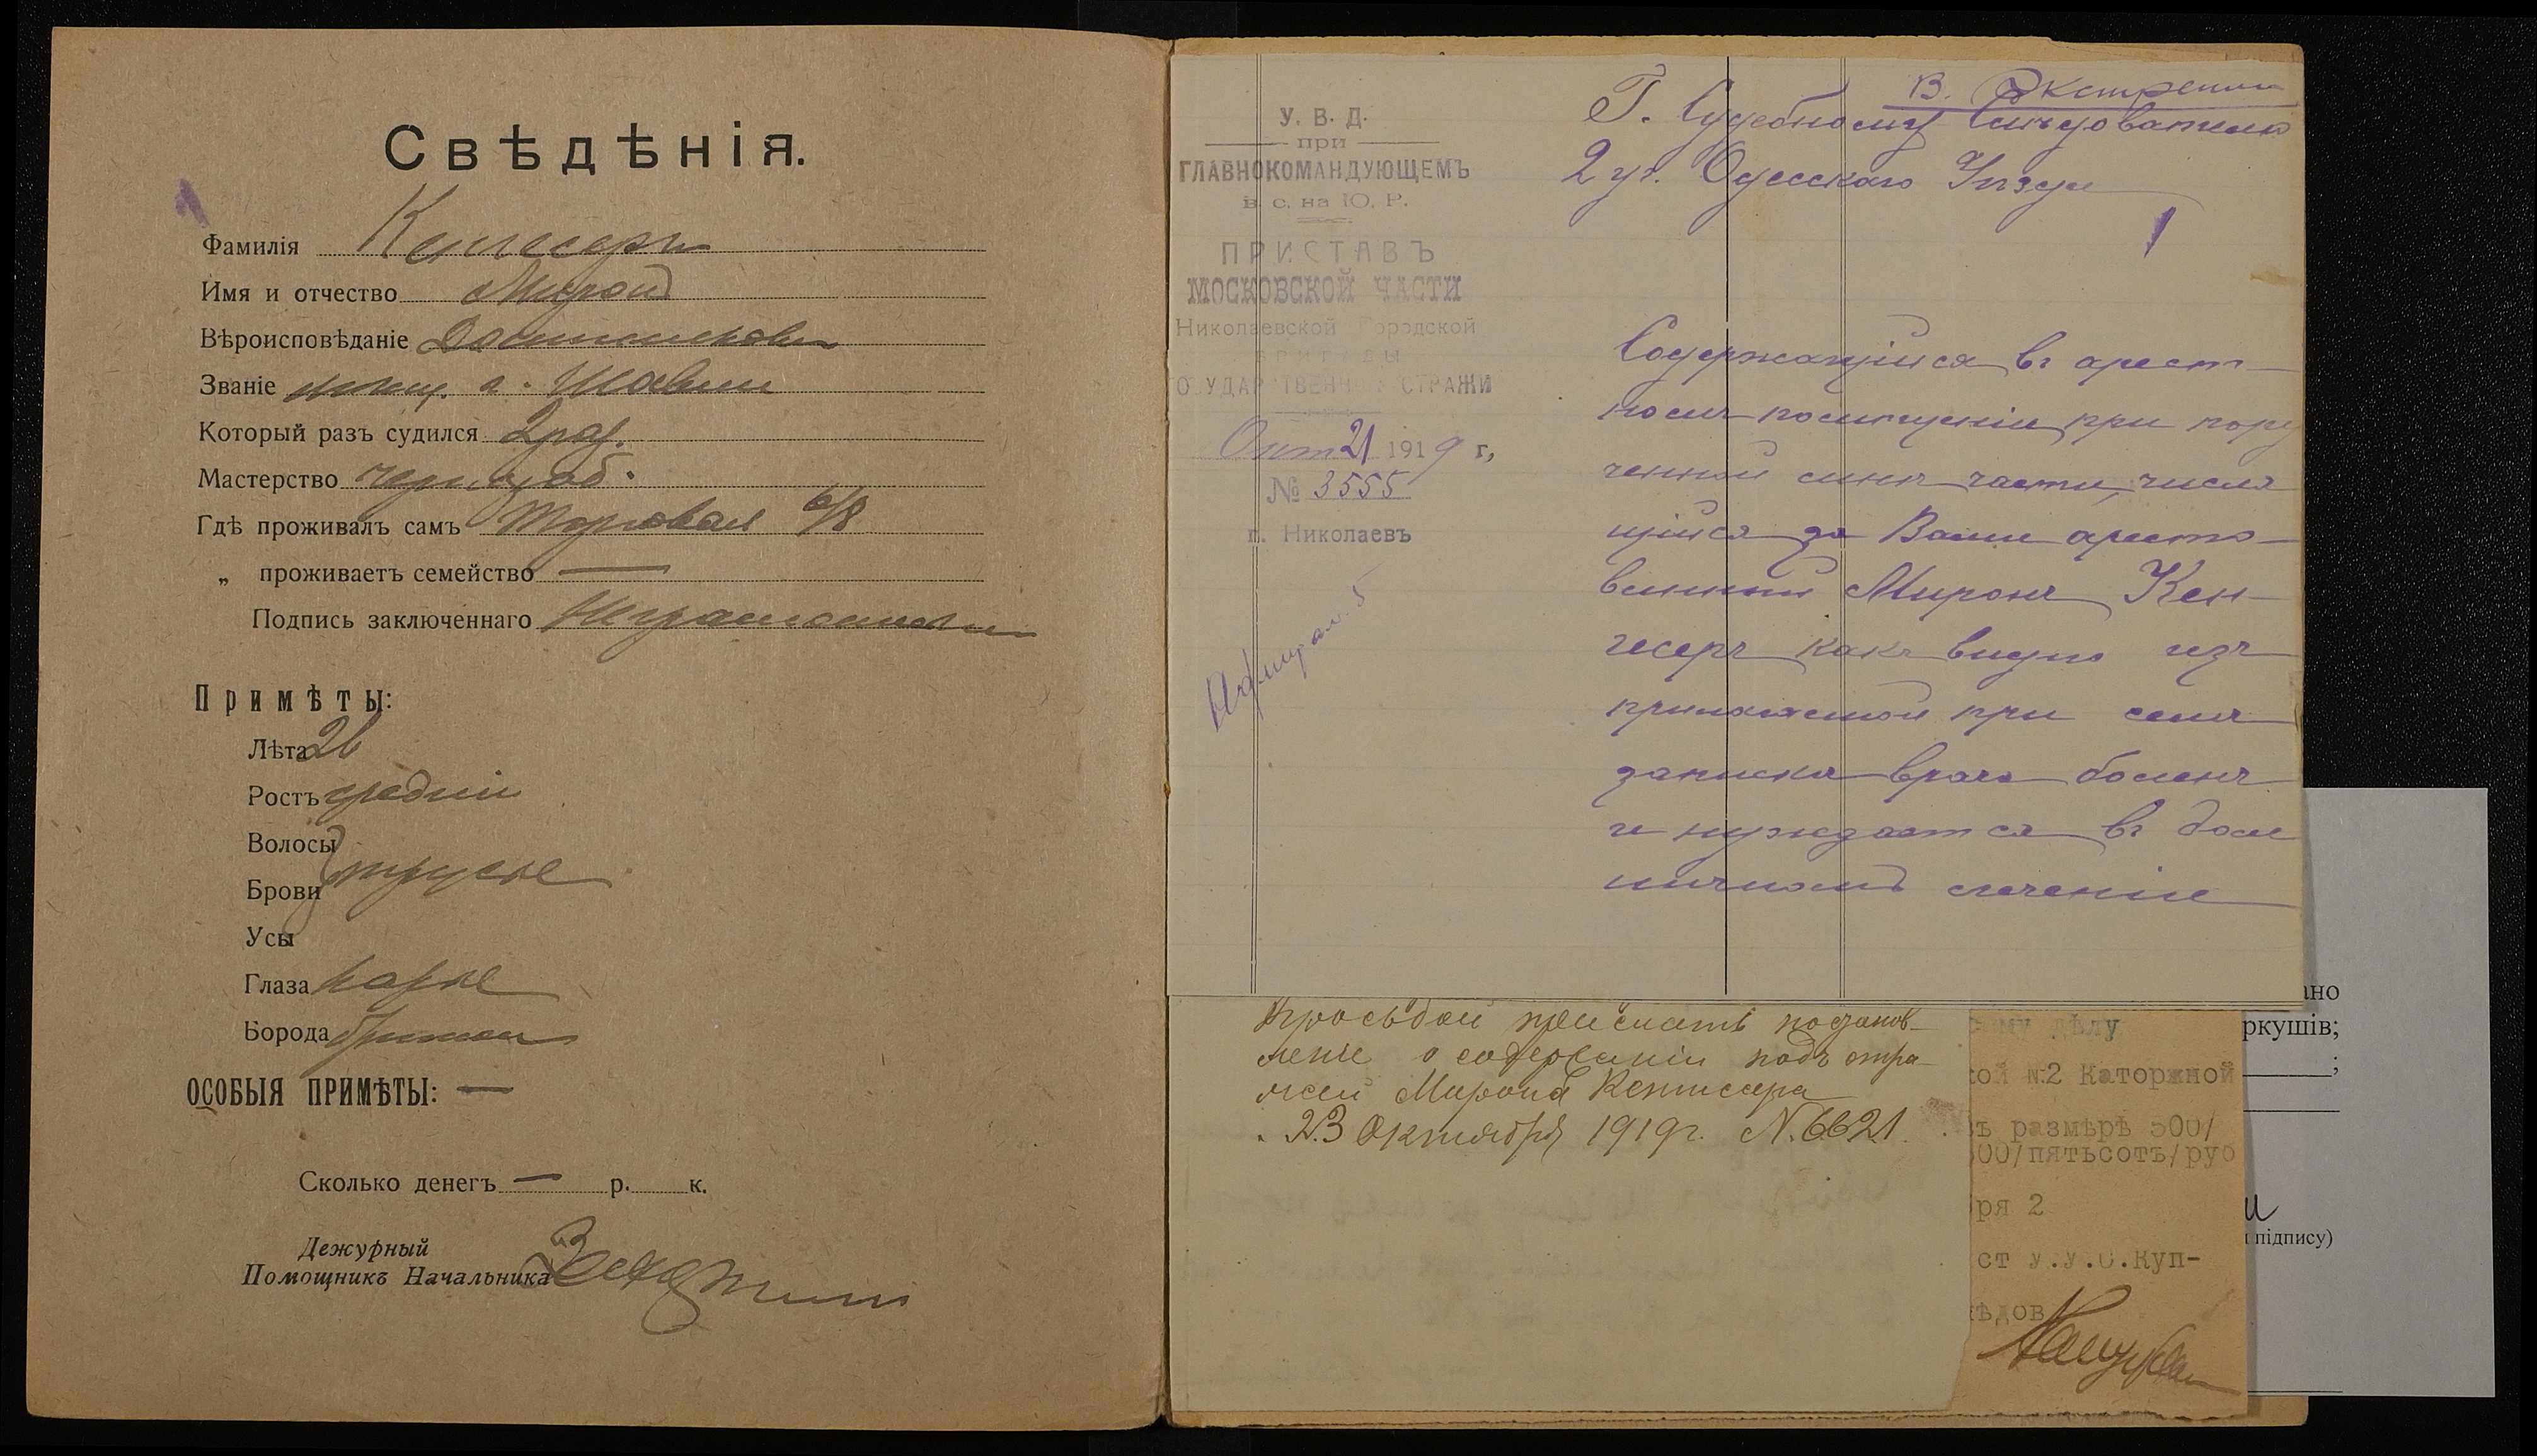 Свѣдѣнія.
Фамилія Кенгесеръ
Имя и отчество Миронъ
Вѣроисповѣданіе
Званіе мѣщ. г. Шавли
Который разъ судился 2 раз.
Мастерство чернораб.
Гдѣ проживалъ самъ Торговая 6/8
„ проживаетъ семейство —
Подпись заключеннаго Неграмотный
Примѣты:
Лѣта 26
Ростъ средній
Волосы
русые
Брови
Усы
Глаза карые
Борода бритая
ОСОБЫЯ ПРИМѢТЫ: —
Сколько денегъ — р. к.
Дежурный
Помощникъ Начальника
1
В. Экстренно
У. В. Д.
при
ГЛАВНОКОМАНДУЮЩЕМЪ
в. с. на Ю. Р.
ПРИСТАВЪ
МОСКОВСКОЙ ЧАСТИ
Николаевской Городской
БРИГАДЫ
ГОСУДАРСТВЕННОЙ СТРАЖИ
Окт 21 1919 г,
№ 3555
г. Николаевъ
Г. Судебному Слѣдователю
2 уч. Одесскаго Уѣзда
1
Содержащійся въ арест-
номъ помѣщеніи при пору
ченной мнѣ части, числя
щійся за Вами аресто-
ванный Миронъ Кен-
гесеръ какъ видно изъ
прилагаемой при семъ
записки врача боленъ
и нуждается въ боль
ничномъ леченіе
просьбой прислать постанов-
леніе о содержаніи подъ стра-
жей Мирона Кенгисера
23 Октября 1919 г. N. 6621
дѣлу
ой №2 Каторжной
ъ размѣрѣ 500/
00/пятьсотъ/руб
ря 2
ст У.У.С.Куп-
ѣдов
ано
ркушів;
;
підпису)